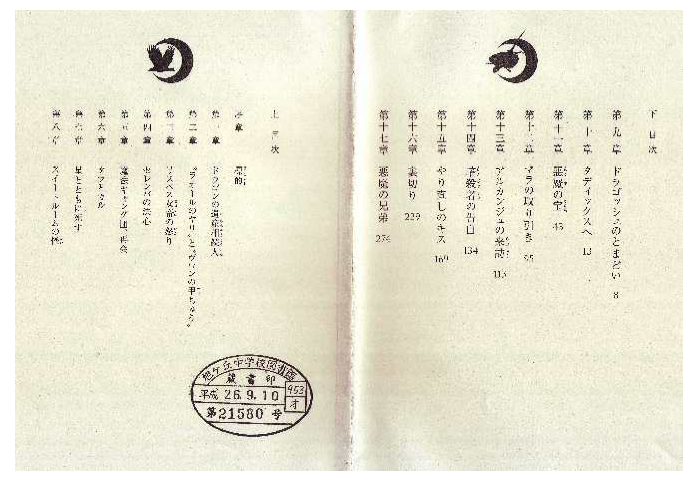 下 目次
第九章 ドラゴッシュのとまどい 8
第十章 タディックスへ 13
第十一章 悪魔の堂 43
第十二章 マラの取り引き 95
第十三章 アルカンジュの来訪 113
第十四章 暗殺者の告白 134
第十五章 やり直しのキス 169
第十六章 裏切り 229
第十七章 悪魔の兄弟 274
上 目次
序章 標的
第一章 ドラゴンの遺産相続人
第二章
第三章 リスペス女帝の怒り
第四章 セレンバの決心
第五章 魔族ギャング団、再会
第六章 タラとカル
第七章 星とともに死す
第八章 スイートルームの怪
旭ケ丘中学校図書館
蔵書印
平成 26.9.10
953
オ
第21580号